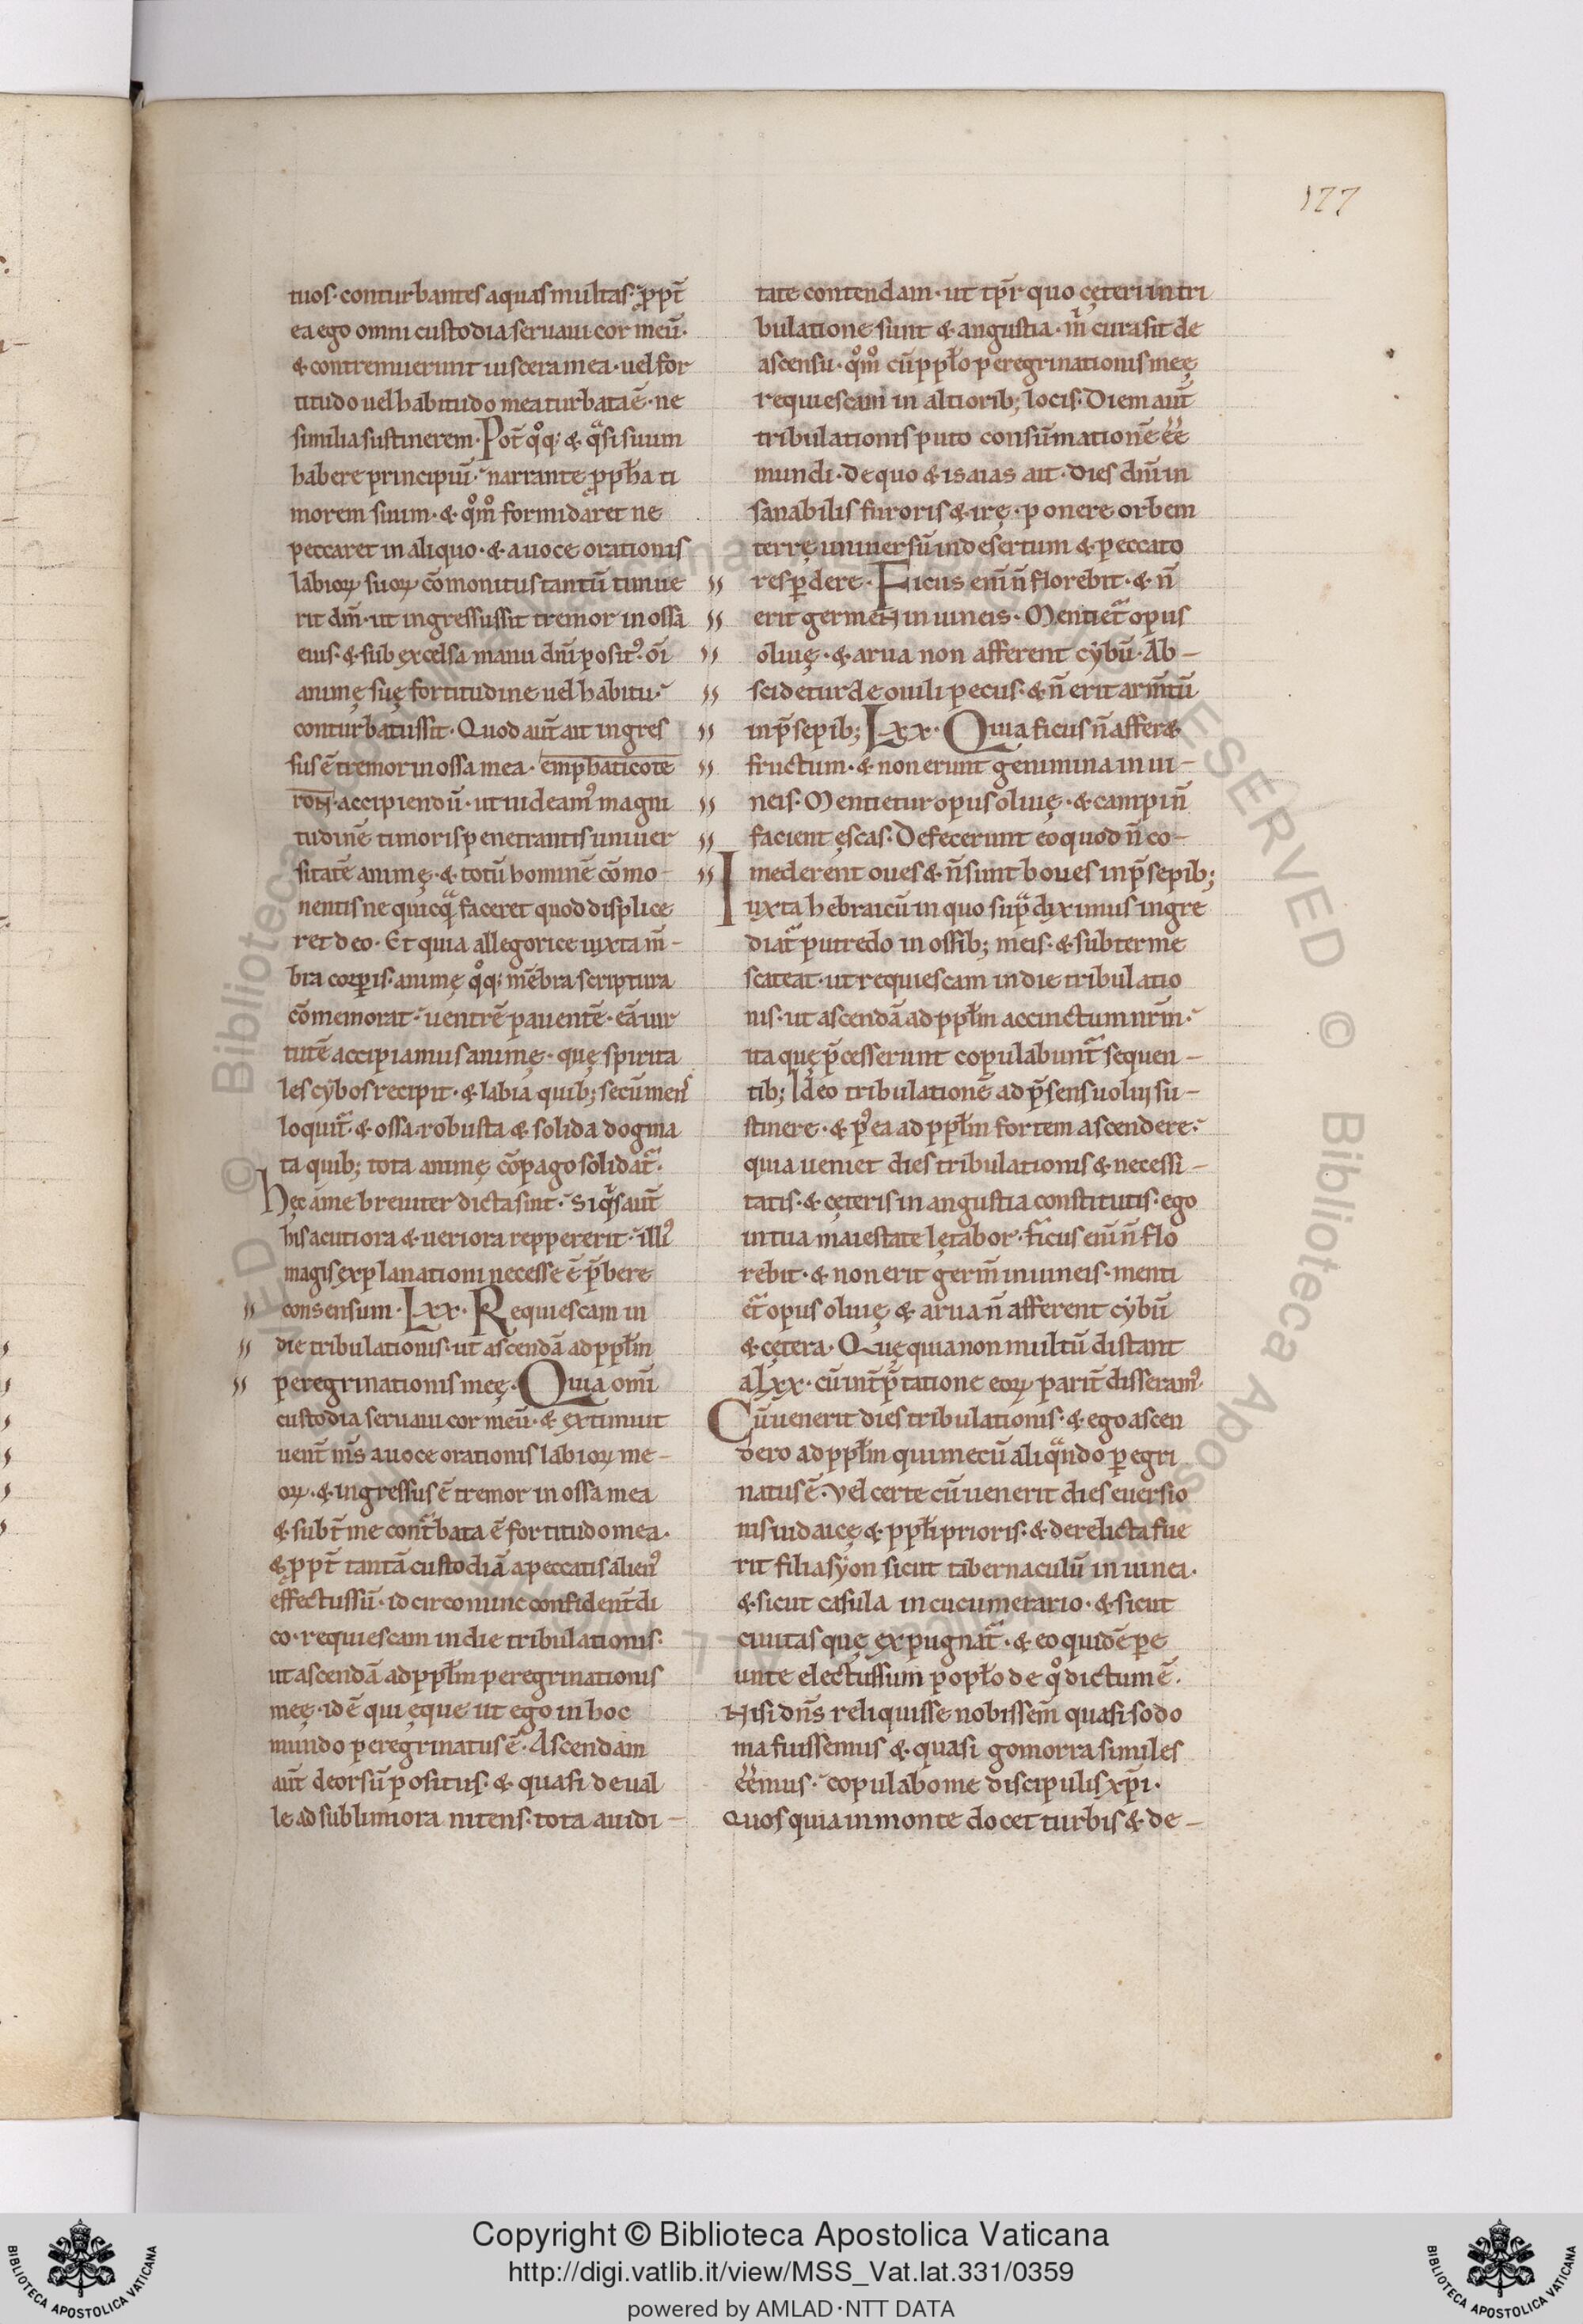 177
tuos· conturbantes aquas multas· ꝓpt̄
ea ego omni custodia seruaui cor meū·
& contremuerunt uiscera mea· uel for
titudo uel habitudo mea turbata ē· ne
similia sustinerem· Pot̄ qͦq; & qͣsi suum
habere principiū· narrante ꝓph̄a ti
morem suum· & qͦm̊ formidaret ne
peccaret in aliquo· & a uoce orationis
labioꝝ suoꝝ cōmonitus tantū timue
rit dm̄· ut ingressus sit tremor in ossa
eius· & sub excelsa manu dn̄i posit᾽ oı̄
animę suę fortitudine uel habitu
conturbatus sit· Quod aut̄ ait ingres
sus ē tremor in ossa mea· emphaticote
ron· accipiendū· ut uideam᾽ magni
tudinē timoris penetrantis uniuer
sitatē animę· & totū hominē cōmo-
nentis ne quicqͣ faceret quod displice
ret deo· Et quia allegorice iuxta m̄-
bra corꝑis· animę qͦq; mēbra scriptura
cōmemorat· uentrē pauentē· eā uir
tutē accipiamus animę· quę spirita
les cybos recipit· & labia quib; secū mens
loquit᷑· & ossa robusta & solida dogma
ta quib; tota animę cōpago solidat᷑·
Hęc a me breuiter dicta sint· Si qͥs aut̄
his acutiora & ueriora reppererit· illi᾽
magis explanationi necesse ē p̄bere
consensum· Lxx· Requiescam in
die tribulationis· ut ascendā ad ppl̄m
peregrinationis meę· Quia omı̄
custodia seruaui cor meū· & extimuit
uent̄ m̄s a uoce orationis labioꝝ me-
oꝝ· & ingressus ē tremor in ossa mea
& subt̄ me cont᷑bata ē fortitudo mea·
& ꝓpt̄ tantā custodiā a peccatis alien᾽
effectus sū· idcirco nunc confident̄ di
co· requiescam in die tribulationis·
ut ascendā ad ppl̄m peregrinationis
meę· id ē qui ęque ut ego in hoc
mundo peregrinatus ē· Ascendam
aut̄ deorsū positus· & quasi de ual
le ad sublimiora nitens· tota auidi-
tate contendam· ut tp̄r quo cęteri in tri
bulatione sunt & angustia· m̊ cura sit de
ascensu· qͦm̊ cū ppl̄o peregrinationis meę
requiescam in altiorib; locis· Diem aut̄
tribulationis puto consūmationē ēē
mundi· de quo & isaias ait· Dies dn̄i in
sanabilis furoris & irę· ponere orbem
terrę uniuersū in desertum & peccato
res ꝑdere· Ficus eni n̄ florebit· & n̄
erit germen in uineis· Mentiet᷑ opus
oliuę· & arua non afferent cybū· Ab-
scidetur de ouili pecus· & n̄ erit arm̄tū
in p̄sepib; Lxx· Quia ficus n̄ affer&
fructum· & non erunt genimina in ui-
neis· Mentietur opus oliuę· & campi n̄
facient ęscas· Defecerunt eo quod n̄ co-
mederent oues & n̄ sunt boues in p̄sepib;
Iuxta hebraicū in quo supͣ diximus ingre
diat᷑ putredo in ossib; meis· & subter me
scateat· ut requiescam in die tribulatio
nis· ut ascendā ad ppl̄m accinctum nr̄m·
ita quę p̄cesserunt copulabunt᷑ sequen-
tib; Ideo tribulationē ad p̄sens uolui su-
stinere· & p᾽ ea ad ppl̄m fortem ascendere·
quia ueniet dies tribulationis & necessi-
tatis· & cęteris in angustia constitutis· ego
in tua maiestate lętabor· ficus eni n̄ flo
rebit· & non erit germ̄ in uineis· menti
et᷑ opus oliuę & arua n̄ afferent cybū
& cętera· Quę quia non multū distant
a Lxx· cū int̄p̄tatione eoꝝ parit̄ disseram᾽·
Cū uenerit dies tribulationis· & ego ascen
dero ad ppl̄m qui mecū aliqͣndo ꝑegri
natus ē· Vel certe cū uenerit dies euersio
nis iudaicę & ppl̄i prioris· & derelicta fue
rit filia syon sicut tabernaculū in uinea·
& sicut casula in cucumerario· & sicut
ciuitas quę expugnat᷑· & eo quidē pe
unte electus sum popl̄o de qͦ dictum ē·
Nisi dn̄s reliquisset nobis sem̄ quasi sodo
ma fuissemus & quasi gomorra similes
ēēmus· copulabo me discipulis xp̄i·
Quos quia in monte docet turbis & de-
Copyright © Biblioteca Apostolica Vaticana
http://digi.vatlib.it/view/MSS_Vat.lat.331/0359
powered by AMLAD·NTT DATA
BIBLIOTECA APOSTOLICA VATICANA
BIBLIOTECA APOSTOLICA VATICANA